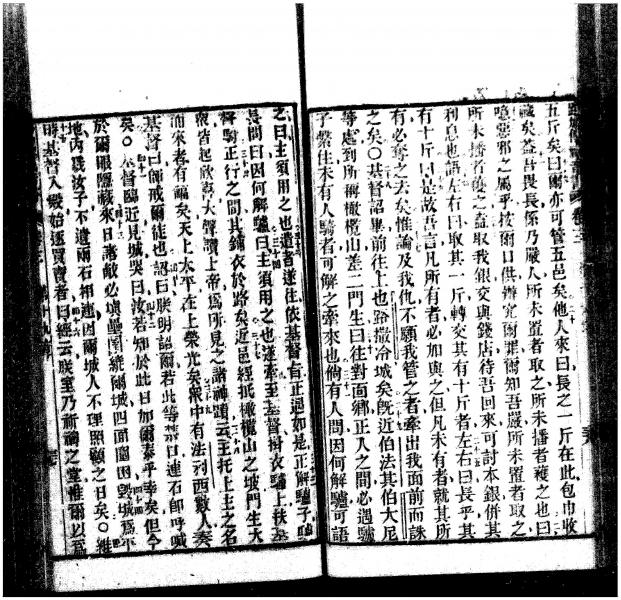 五斤矣曰爾亦可管五邑矣他人來曰長之一斤在此包巾收
藏矣蓋吾畏長係乃嚴人所未置者取之所未播者穫之也曰
噫惡邪之屬乎按爾口供辦究爾罪爾知吾嚴所未置者取之
所未播者穫之蓋取我銀交與錢店待吾回來可討本銀併其
利息也語左右曰取其一斤轉交其有十斤者左右曰長乎其
有十斤曰是故吾言凡所有者必加與之但凡未有者就其所
有必奪之去矣惟論及我仇不願我管之者牽出我面前而誅
之矣○基督詔畢前往上也路撒冷城矣既近伯法其伯大尼
等處到所稱橄欖山差二門生曰往對面鄉正人之間必遇驢
子繫住未有人騎者可解之牽來也倘有人問因何解驢可語
之曰主須用之也遣者遂往依基督言正遇如是正解驢子時
長問曰因何解驢曰主須用之也遂牽至基督揜衣驢上扶基
督騎正行之間其鋪衣於路矣近邑經抵橄欖山之坡門生大
眾皆起欣喜大聲讚上帝爲所見之諸神蹟云王托上主之名
而來者有福矣天上太平在上榮光矣眾中有法利西數人奏
基督曰師戒爾徒也認曰朕明詔爾若此等禁口連石即呼喊
矣○基督臨近見城哭曰汝若知於此日加爾泰乎幸矣但今
於爾眼隱藏來日諸敵必填壘圍繞爾城四面圍困毀城爲平
地內戮汝子不遺兩石相連因爾城人不理照顧之日矣○維
時基督入殿始逐買賣者曰經云朕室乃祈禱之堂惟爾以爲